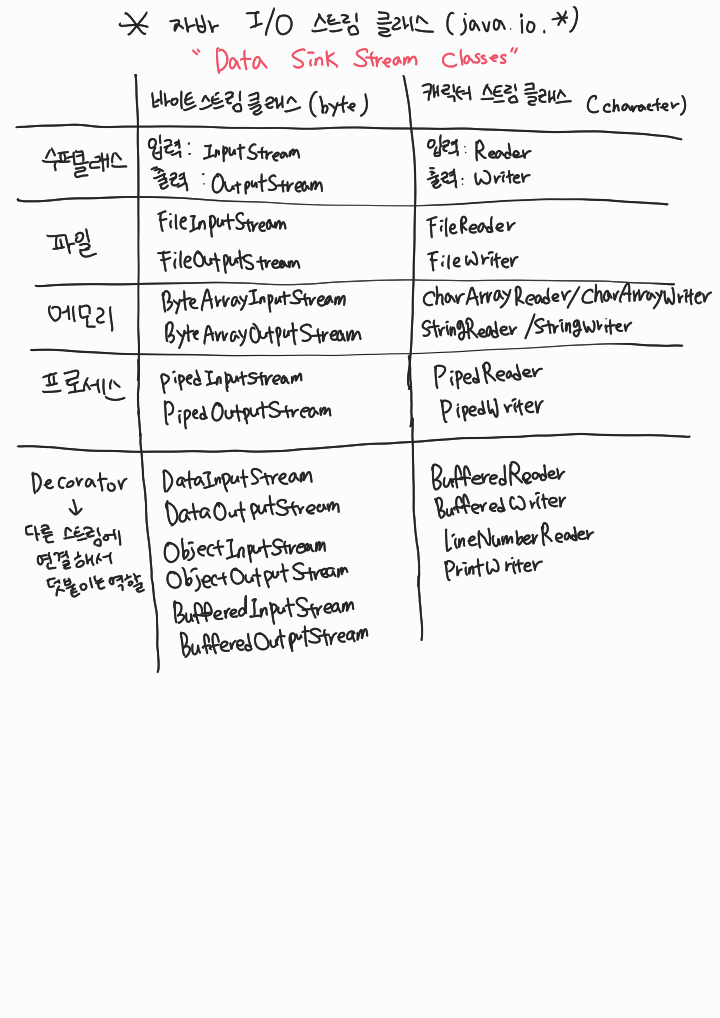 * 자바 I/O 스트림 클래스 (java.io.*)
"Data Sink Stream Classes"
바이트스트림 클래스 (byte) 캐릭터 스트림 클래스 (character)
수퍼클래스
입력: InputStream
출력: OutputStream
입력: Reader
출력: Writer
파일
FileInputStream
FileOutputStream
FileReader
FileWriter
메모리
ByteArrayInputStream
ByteArrayOutputStream
CharArrayReader/CharArrayWriter
StringReader/StringWriter
프로세스
PipedInputStream
PipedOutputStream
PipedReader
PipedWriter
Decorator
↓
다른 스트림에
연결해서
덧붙이는 역할
DataInputStream
DataOutputStream
ObjectInputStream
ObjectOutputStream
BufferedInputStream
BufferedOutputStream
BufferedReader
BufferedWriter
LineNumberReader
PrintWriter